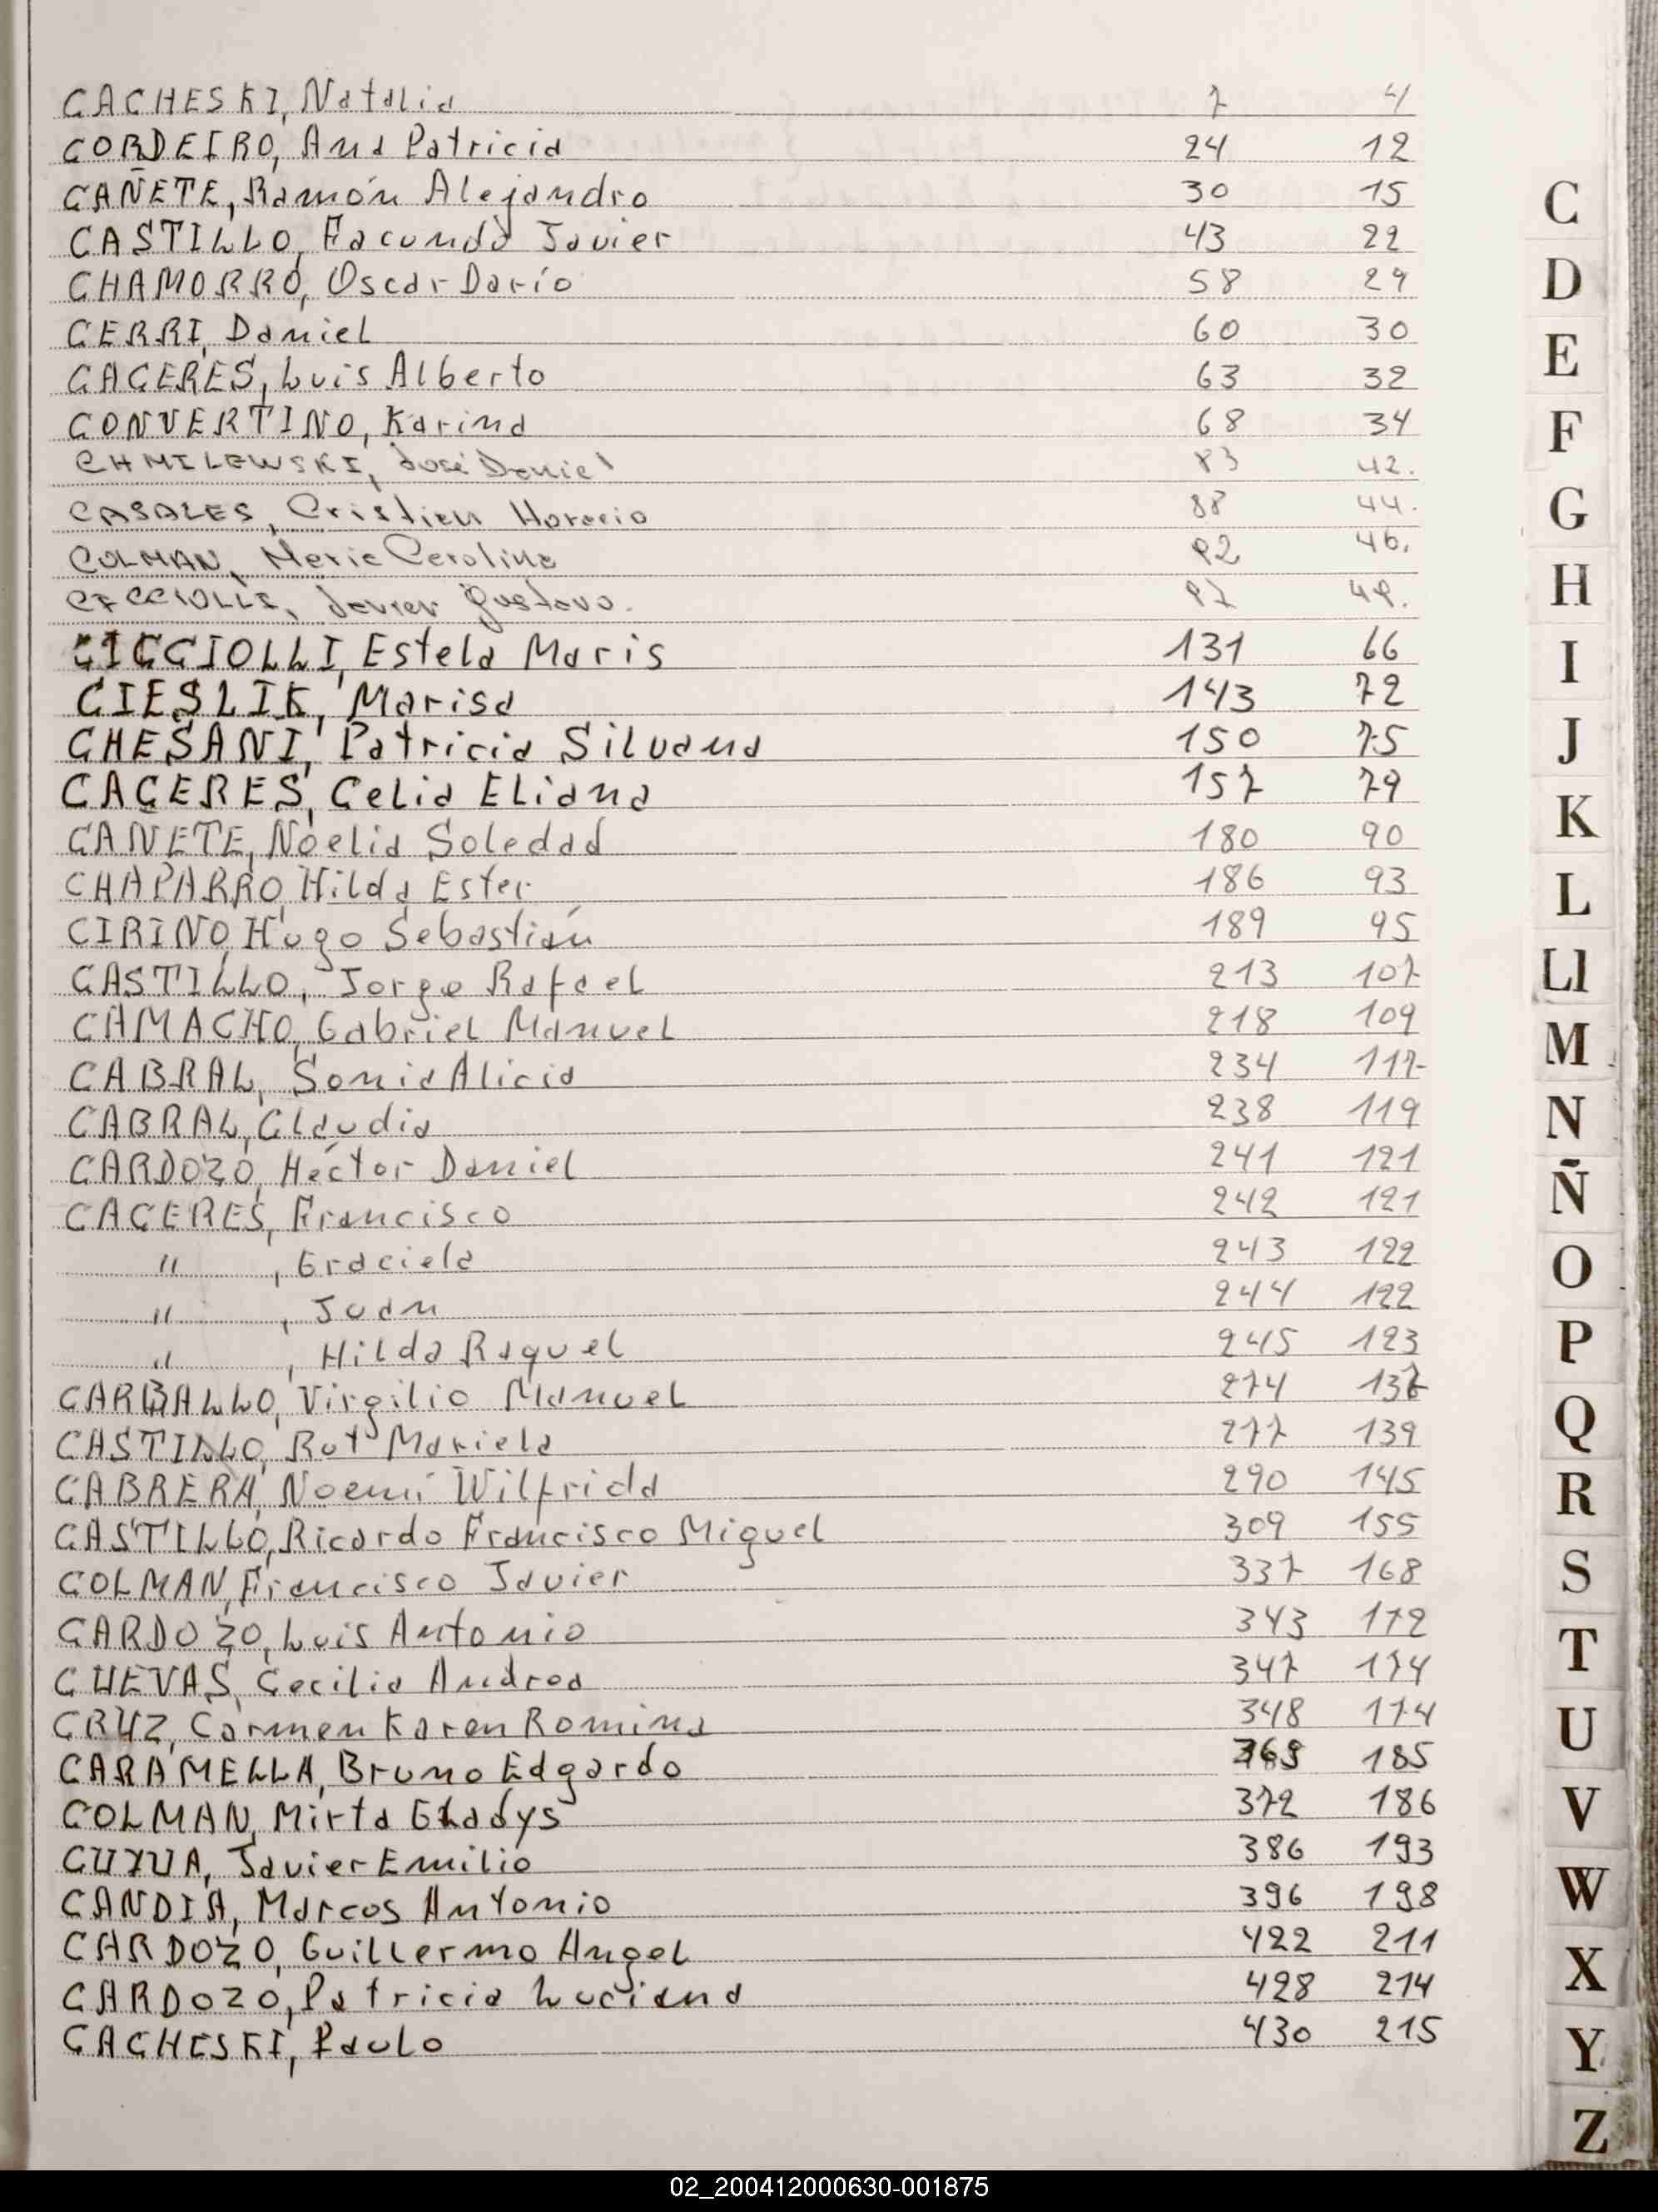 CACHESKI, Natalia 7 4
CORDEIRO, Ana Patricia 24 12
CAÑETE, Ramón Alejandro 30 15
CASTILLO, Facundo Javier 43 22
CHAMORRO, Oscar Darío 58 29
CERRI, Daniel 60 30
CACERES, Luis Alberto 63 32
CONVERTINO, Karina 68 34
CHMILEWSKI, José Daniel 83 42.
CASALES, Cristian Horacio 88 44.
COLMAN, Maria Carolina 92 46.
CICCIOLLI, Javier Gustavo. 97 49.
CICCIOLLI, Estela Maris 131 66
CIESLIK, Marisa 143 72
CHESANI, Patricia Silvana 150 75
CACERES, Celia Eliana 157 79
CANETE, Noelia Soledad 180 90
CHAPARRO, Hilda Ester 186 93
CIRINO, Hugo Sebastián 189 95
CASTILLO, Jorge Rafael 213 107
CAMACHO, Gabriel Manuel 218 109
CABRAL, Sonia Alicia 234 117
CABRAL, Claudia 238 119
CARDOZO, Héctor Daniel 241 121
CACERES, Francisco 242 121
" , Graciela 243 122
" , Juan 244 122
" , Hilda Raquel 245 123
CARBALLO, Virgilio Manuel 274 137
CASTILLO, Rut Mariela 277 139
CABRERA, Noemí Wilfrida 290 145
CASTILLO, Ricardo Francisco Miguel 309 155
COLMAN, Francisco Javier 337 168
CARDOZO, Luis Antonio 343 172
CHEVAS, Cecilia Andrea 347 174
CRUZ, Carmen Karen Romina 348 174
CARAMELLA, Bruno Edgardo 369 185
COLMAN, Mirta Gladys 372 186
CUYUA, Javier Emilio 386 193
CANDIA, Marcos Antonio 396 198
CARDOZO, Guillermo Angel 422 211
CARDOZO, Patricia Luciana 428 214
CACHESKI, Paulo 430 215
C
D
E
F
G
H
I
J
K
L
Ll
M
N
Ñ
O
P
Q
R
S
T
U
V
W
X
Y
Z
02_200412000630-001875